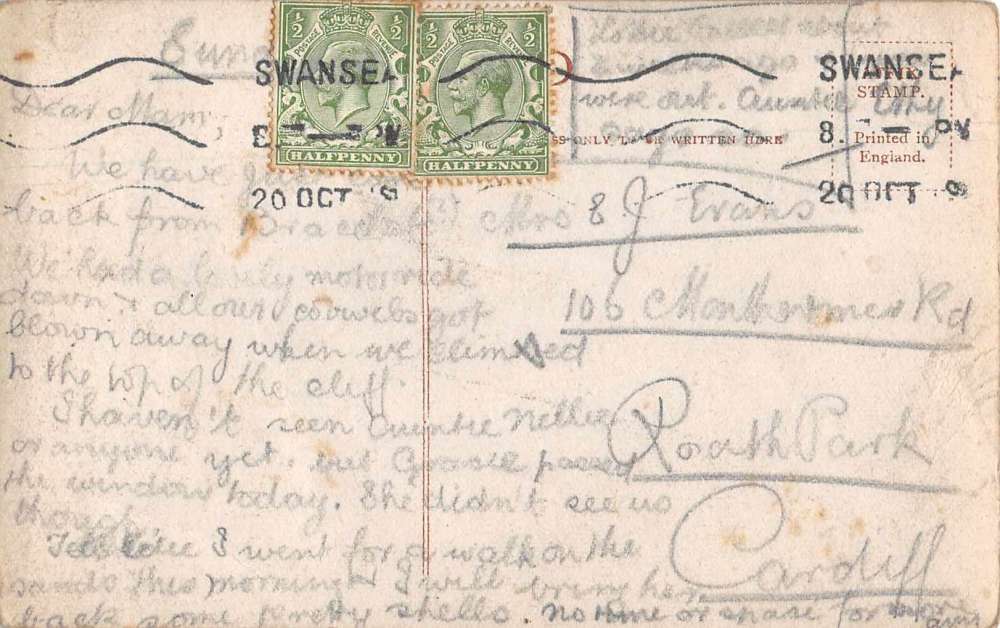 Sunday
Dear Mam,
We have just
back from
We had a lovely motor ride
down & all our cobwebs got
blown away when we climbed
to the top of the cliff.
I haven't seen Auntie Nellie
or anyone yet. but passed
the window today. She didn't see us
though.
Tell I went for a walk on the
sands this morning & I will bring her
back some pretty shells. No time or space for more
about
were out. Auntie
½ POSTAGE REVENUE ½
HALFPENNY
½ POSTAGE REVENUE ½
HALFPENNY
SWANSEA
8 PM
20 OCT
SWANSEA
8 PM
20 OCT
STAMP.
Printed in
England.
SS ONLY TO BE WRITTEN HERE
Mrs J Evans
106 Monthermer Rd
Roath Park
Cardiff